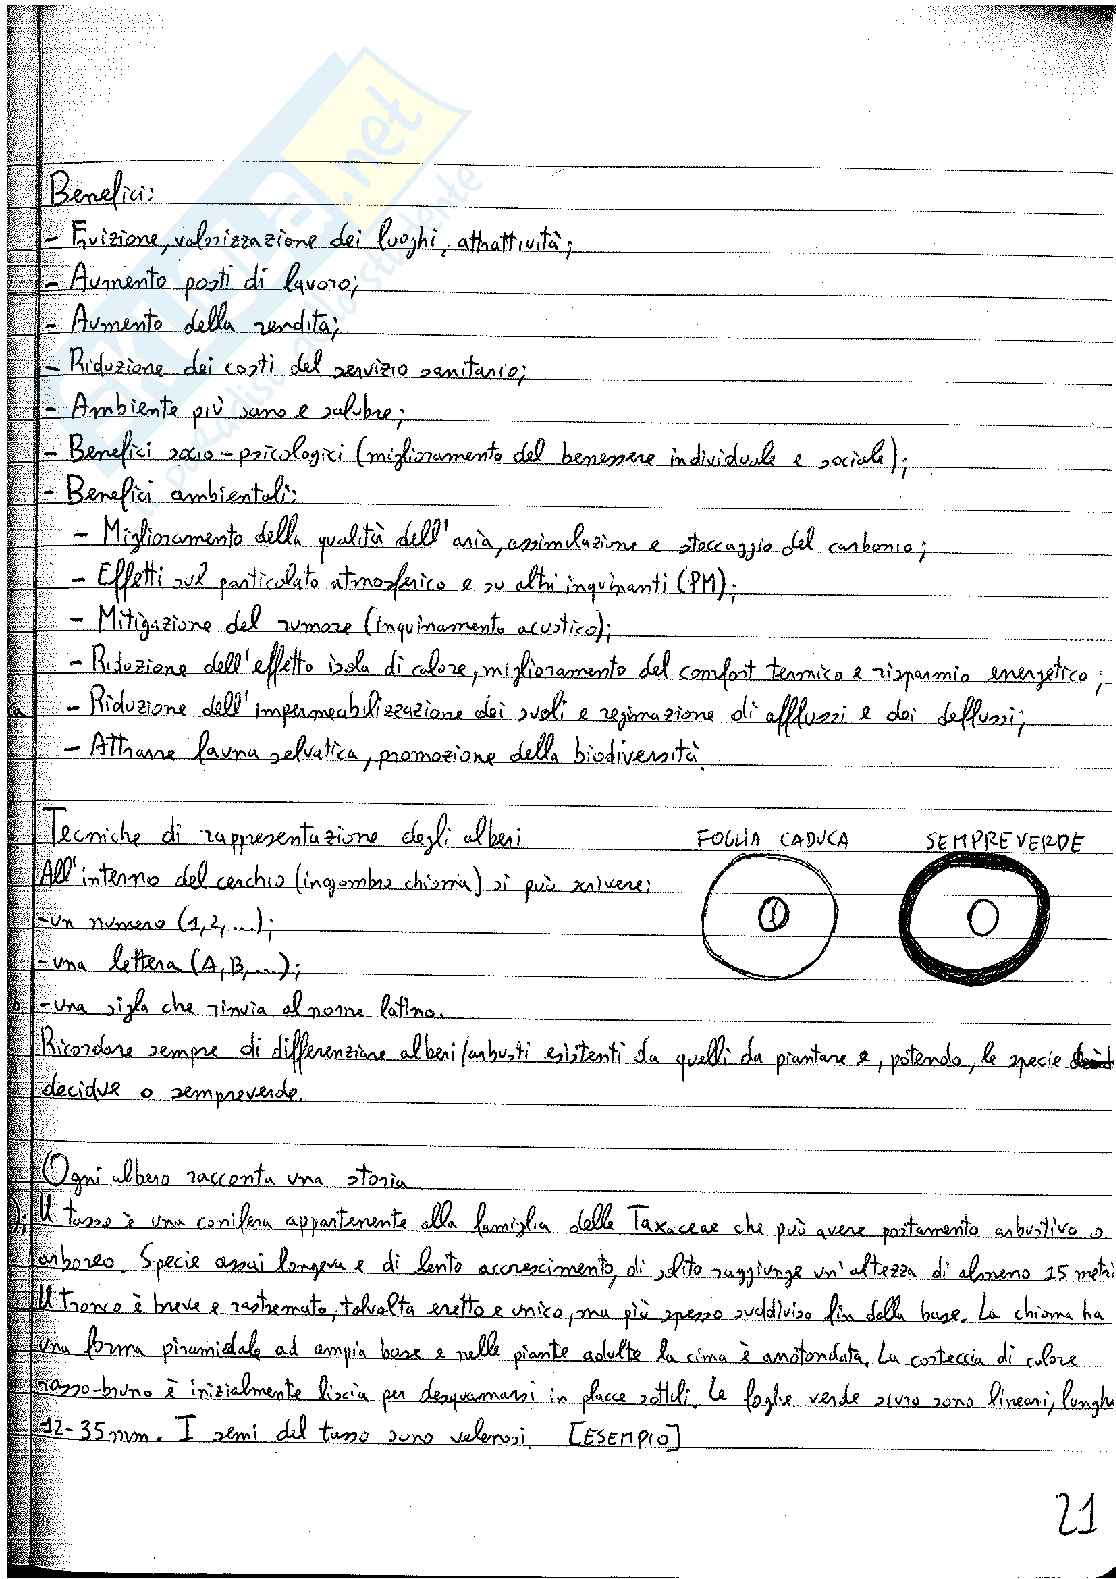 Benefici:
- Fruizione, valorizzazione dei luoghi, attrattività;
- Aumento posti di lavoro;
- Aumento della rendita;
- Riduzione dei costi del servizio sanitario;
- Ambiente più sano e salubre;
- Benefici socio-psicologici (miglioramento del benessere individuale e sociale);
- Benefici ambientali:
- Miglioramento della qualità dell'aria, assimilazione e stoccaggio del carbonio;
- Effetti sul particolato atmosferico e su altri inquinanti (PM);
- Mitigazione del rumore (inquinamento acustico);
- Riduzione dell'effetto isola di calore, miglioramento del comfort termico e risparmio energetico;
- Riduzione dell'impermeabilizzazione dei suoli e regimazione di afflussi e dei deflussi;
- Attrarre fauna selvatica, promozione della biodiversità.
Tecniche di rappresentazione degli alberi
FOGLIA CADUCA SEMPREVERDE
All'interno del cerchio (ingombro chioma) si può scrivere:
- un numero (1,2,...);
1
- una lettera (A,B,...);
- una sigla che rinvia al nome latino.
Ricordare sempre di differenziare alberi/arbusti esistenti da quelli da piantare e, potendo, le specie
decidue o sempreverde.
Ogni albero racconta una storia
Il tasso è una conifera appartenente alla famiglia delle Taxaceae che può avere portamento arbustivo o
arboreo. Specie assai longeva e di lento accrescimento, di solito raggiunge un'altezza di almeno 15 metri
Il tronco è breve e rastremato, talvolta eretto e unico, ma più spesso suddiviso fin dalla base. La chioma ha
una forma piramidale ad ampia base e nelle piante adulte la cima è arrotondata. La corteccia di colore
rosso-bruno è inizialmente liscia per desquamarsi in placce sottili. Le foglie verde scuro sono lineari, lunghe
12-35 mm. I semi del tasso sono velenosi. [ESEMPIO]
21